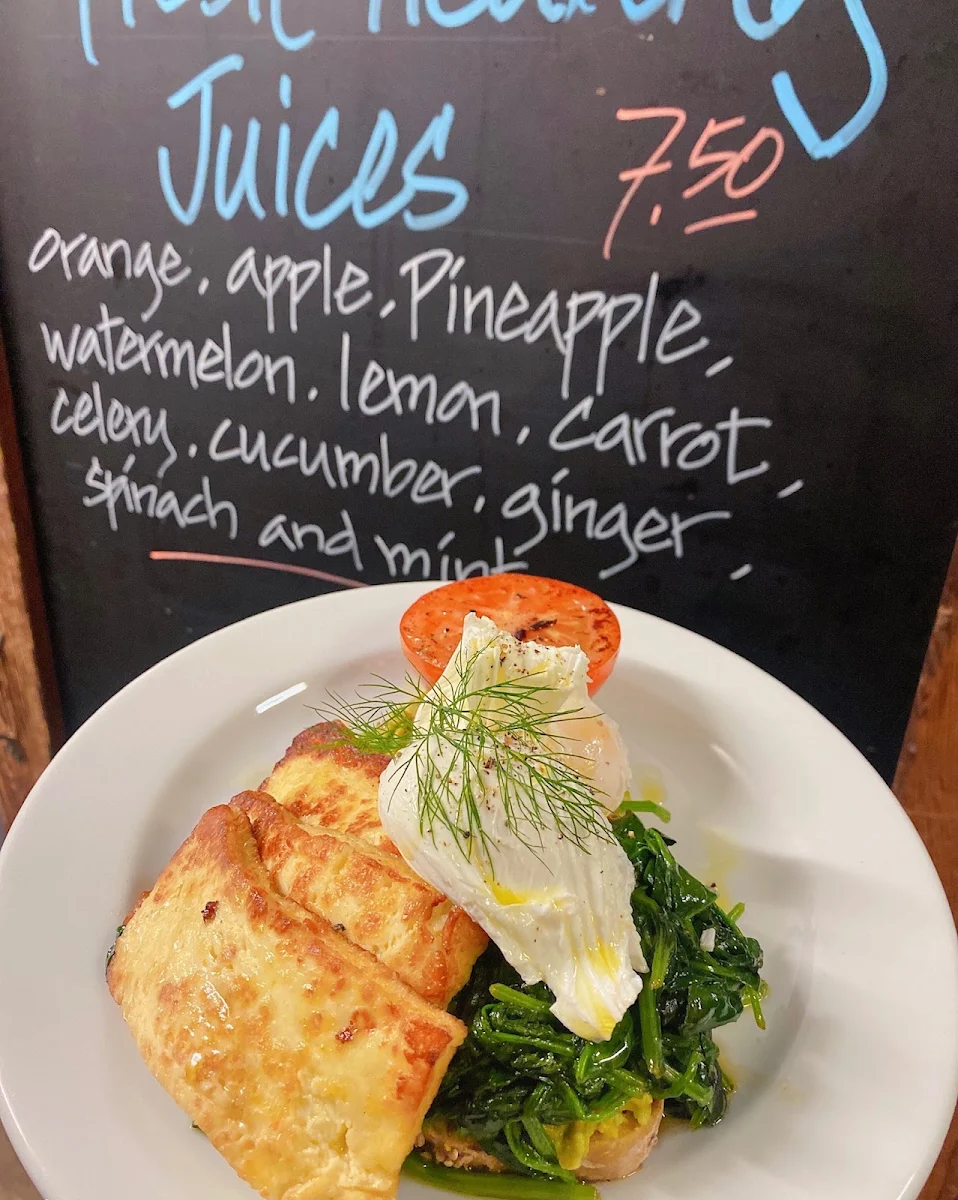 Fresh Healthy
Juices 7.50
orange, apple, Pineapple,
watermelon, lemon, carrot,
celery, cucumber, ginger,
spinach and mint